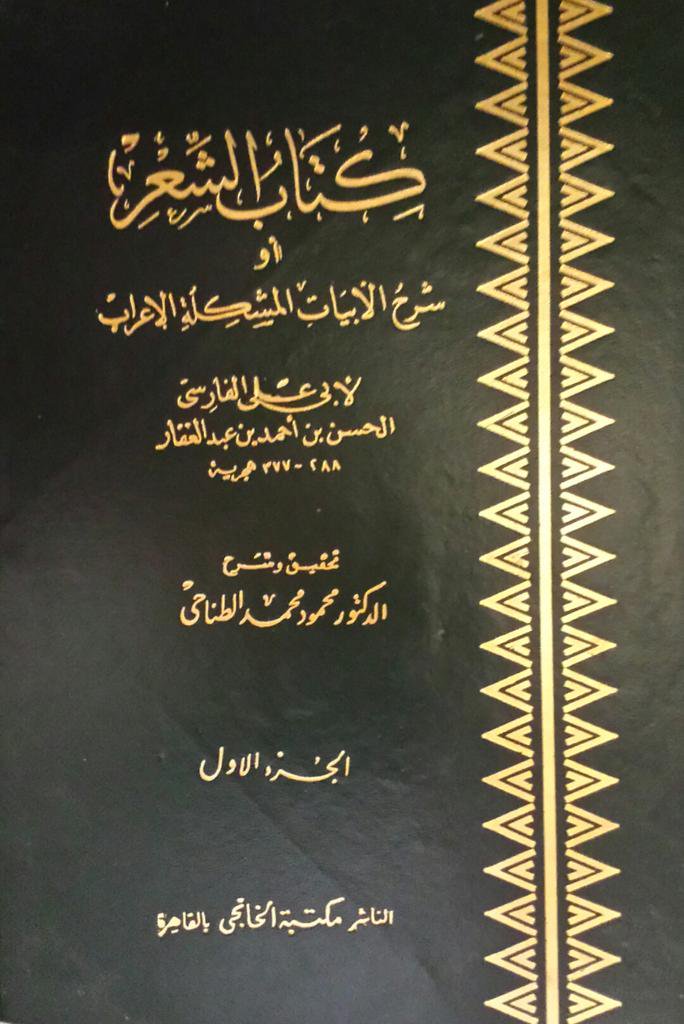 كِتَابُ الشِّعْرِ
أو
شرحُ الأبيَاتِ المشكِلَةِ الإعرابِ
لأبي علي الفارسي
الحسن بن أحمد بن عبد الغفار
٢٨٨ - ٣٧٧ هجرية
تحقيق وشرح
الدكتور محمود محمد الطناحي
الجزء الأول
الناشر مكتبة الخانجي بالقاهرة